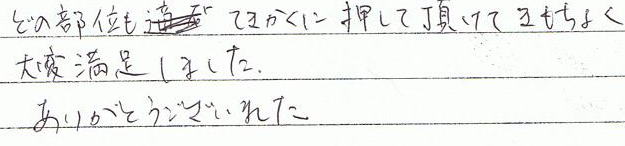 どの部位も てきかくに押して頂けてきもちよく
大変満足しました.
ありがとうございました